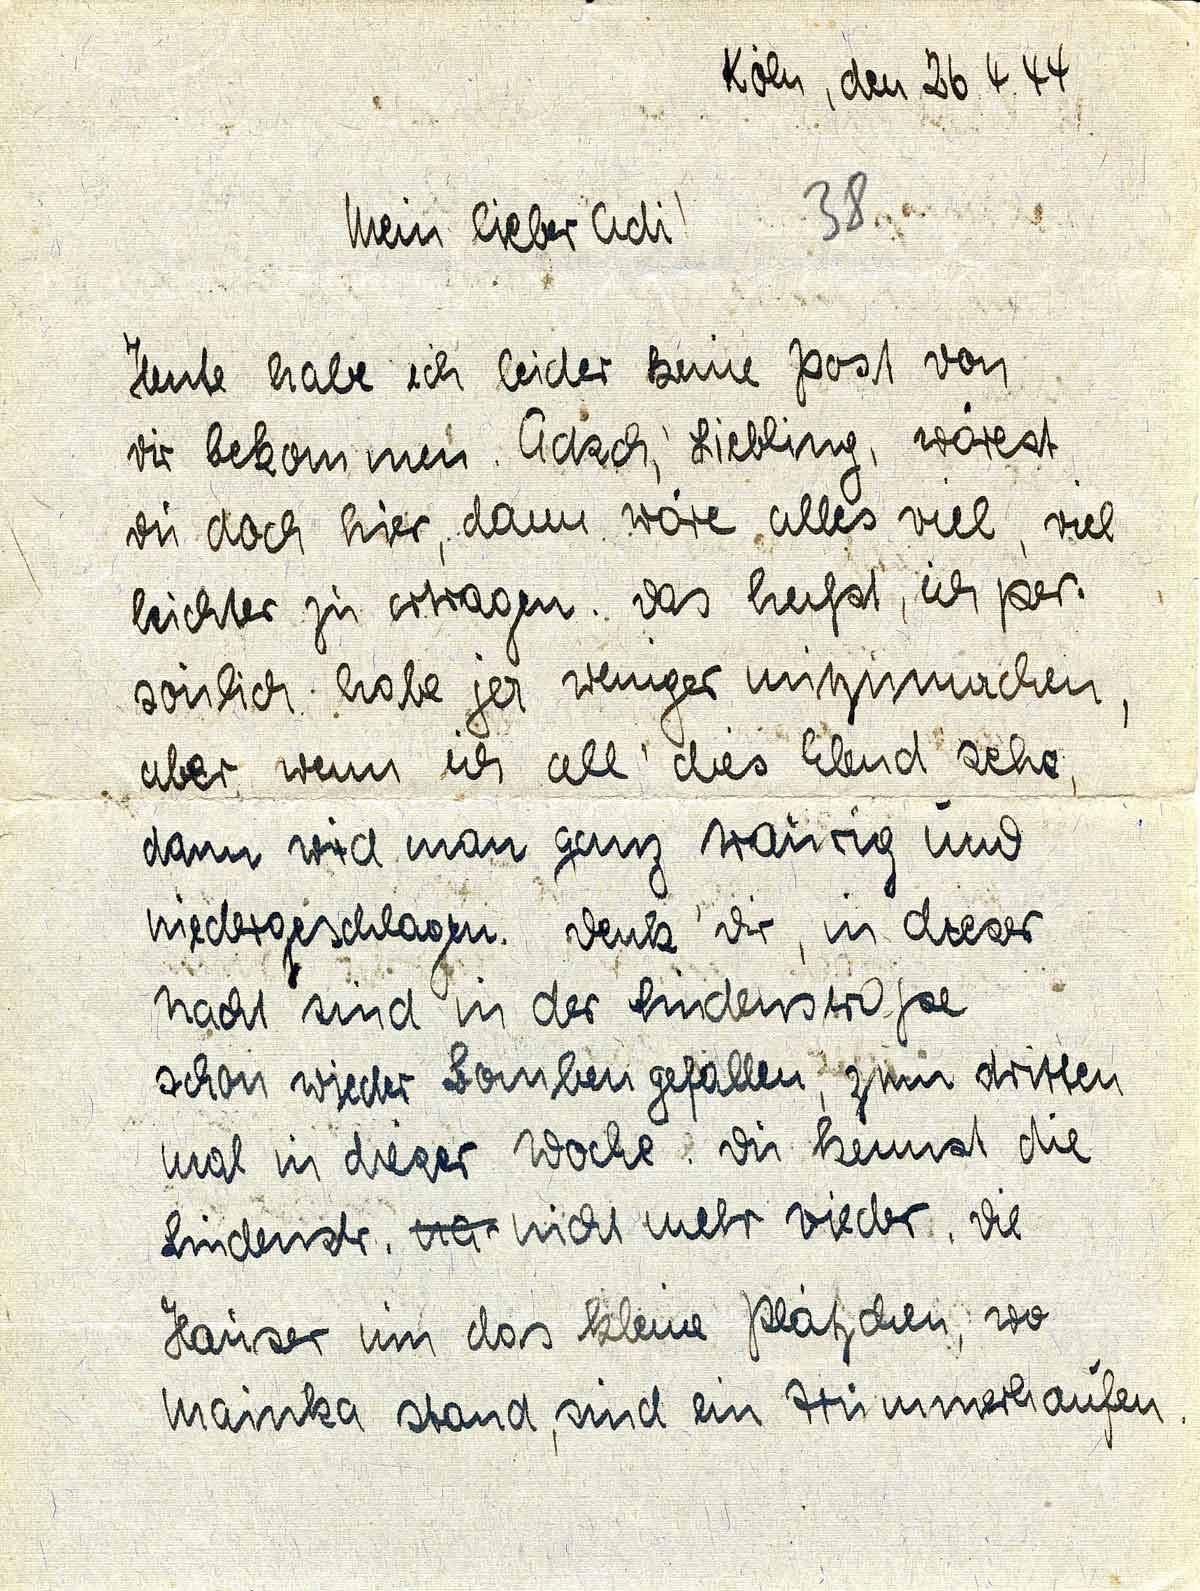 Köln, den 26.4.44
Mein lieber Adi!
38
Heute habe ich leider keine Post von
Dir bekommen. Adsch, Liebling, wärest
Du doch hier, dann wäre alles viel, viel
leichter zu ertragen. Das heißt, ich per-
sönlich habe ja weniger mitzumachen,
aber wenn ich all' dies Elend sehe,
dann wird man ganz traurig und
niedergeschlagen. Denk' Dir, in dieser
Nacht sind in der Lindenstraße
schon wieder Bomben gefallen, zum dritten
mal in dieser Woche. Du kennst die
Lindenstr. nicht mehr wieder. Die
Häuser um das kleine Plätzchen, wo
Mainka stand, sind ein Trümmerhaufen.